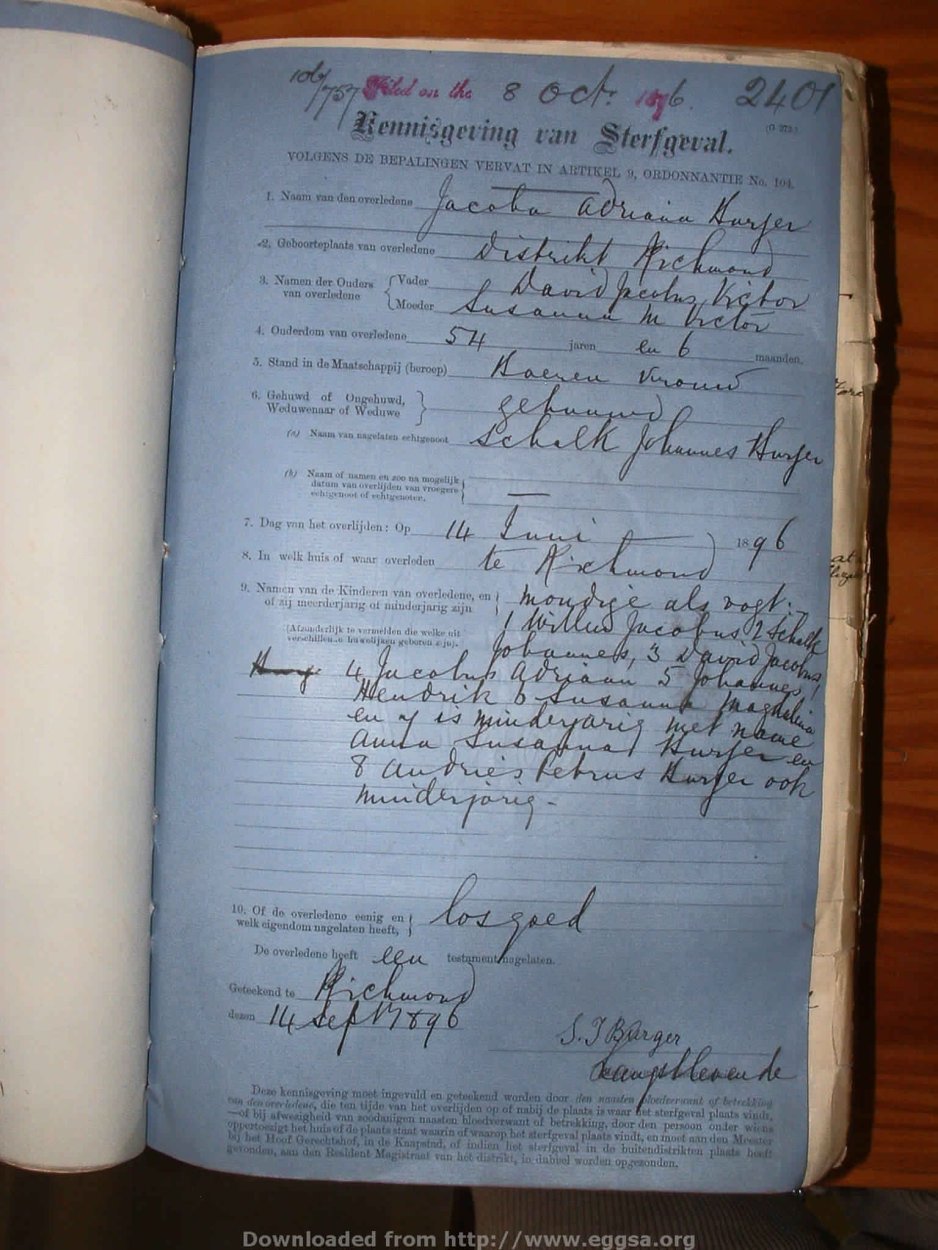 106/757 Filed on the 8 Oct. 1896. 2401
(G 273.)
Kennisgeving van Sterfgeval.
VOLGENS DE BEPALINGEN VERVAT IN ARTIKEL 9, ORDONNANTIE No. 104.
1. Naam van den overledene Jacoba Adriana Burger
2. Geboorteplaats van overledene Distrikt Richmond
3. Namen der Ouders van overledene { Vader David Jacobus Victor
Moeder Susanna M Victor
4. Ouderdom van overledene 54 jaren en 6 maanden.
5. Stand in de Maatschappij (beroep) Boeren Vrouw
6. Gehuwd of Ongehuwd, Weduwenaar of Weduwe } gehuuwd
(a) Naam van nagelaten echtgenoot Schalk Johannes Burger
(b) Naam of namen en zoo na mogelijk
datum van overlijden van vroegere
echtgenoot of echtgenoten. —
7. Dag van het overlijden: Op 14 Juni 1896
8. In welk huis of waar overleden te Richmond
9. Namen van de Kinderen van overledene, en
of zij meerderjarig of minderjarig zijn { mondige als vogt:-
(Afzonderlijk te vermelden die welke uit
verschillende huwelijken geboren zijn).
1 Willem Jacobus 2 Schalk
Johannes, 3 David Jacobus,
4 Jacobus Adriaan 5 Johannes
Hendrik 6 Susanna Magdalina
en 7 is minderjarig met name
Anna Susanna Burger en
8 Andries Petrus Burger ook
minderjarig -
10. Of de overledene eenig en
welk eigendom nagelaten heeft, } losgoed
De overledene heeft een testament nagelaten.
Geteekend te Richmond
dezen 14 Sept 1896
S. J Burger
Langstlevende
Deze kennisgeving moet ingevuld en geteekend worden door den naasten bloedverwant of betrekking
van den overledene, die ten tijde van het overlijden op of nabij de plaats is waar het sterfgeval plaats vindt,
—of bij afwezigheid van zoodanigen naasten bloedverwant of betrekking, door den persoon onder wiens
oppertoezigt het huis of de plaats staat waarin of waarop het sterfgeval plaats vindt, en moet aan den Meester
bij het Hoof Gerechtshof, in de Kaapstad, of indien het sterfgeval in de buitendistrikten plaats heeft
gevonden, aan den Resident Magistraat van het distrikt, in dubbel worden opgezonden.
Downloaded from http://www.eggsa.org